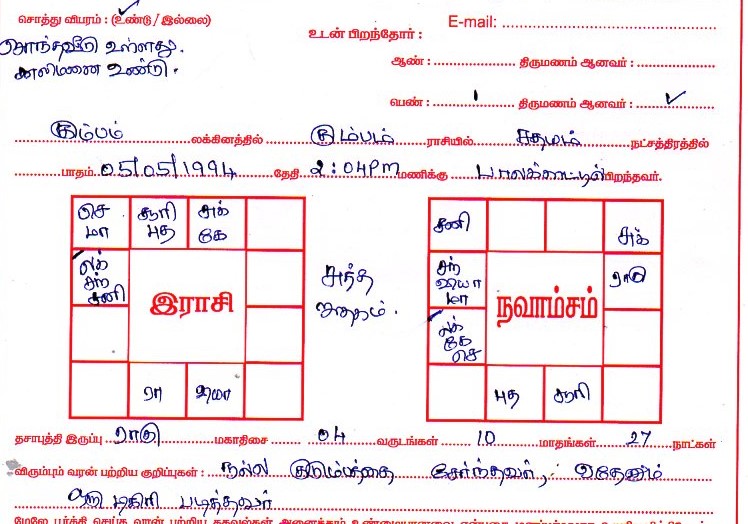 சொத்து விபரம் : (உண்டு / இல்லை)
சொந்தவீடு உள்ளது.
காலிமனை உண்டு.
E-mail:
உடன் பிறந்தோர் :
ஆண் : திருமணம் ஆனவர் :
பெண் : 1 திருமணம் ஆனவர் : ✓
கும்பம் லக்கினத்தில் கும்பம் ராசியில் சதயம் நட்சத்திரத்தில்
பாதம் 05/05/1994 தேதி 2:04PM மணிக்கு பாலக்காட்டில் பிறந்தவர்.
செ
மா
சூரி
புத
சுக்
கே
லக்
சந்
சனி
இராசி
ரா
குரு
சனி
சுக்
சந்
மா
ராகு
நவாம்சம்
லக்
கே
செ
புத
சூரி
தசாபுத்தி இருப்பு ராகு மகாதிசை 04 வருடங்கள் 10 மாதங்கள் 27 நாட்கள்
விரும்பும் வரன் பற்றிய குறிப்புகள் : நல்ல குடும்பத்தை சேர்ந்தவர், ஏதேனும்
டிகிரி படித்தவர்